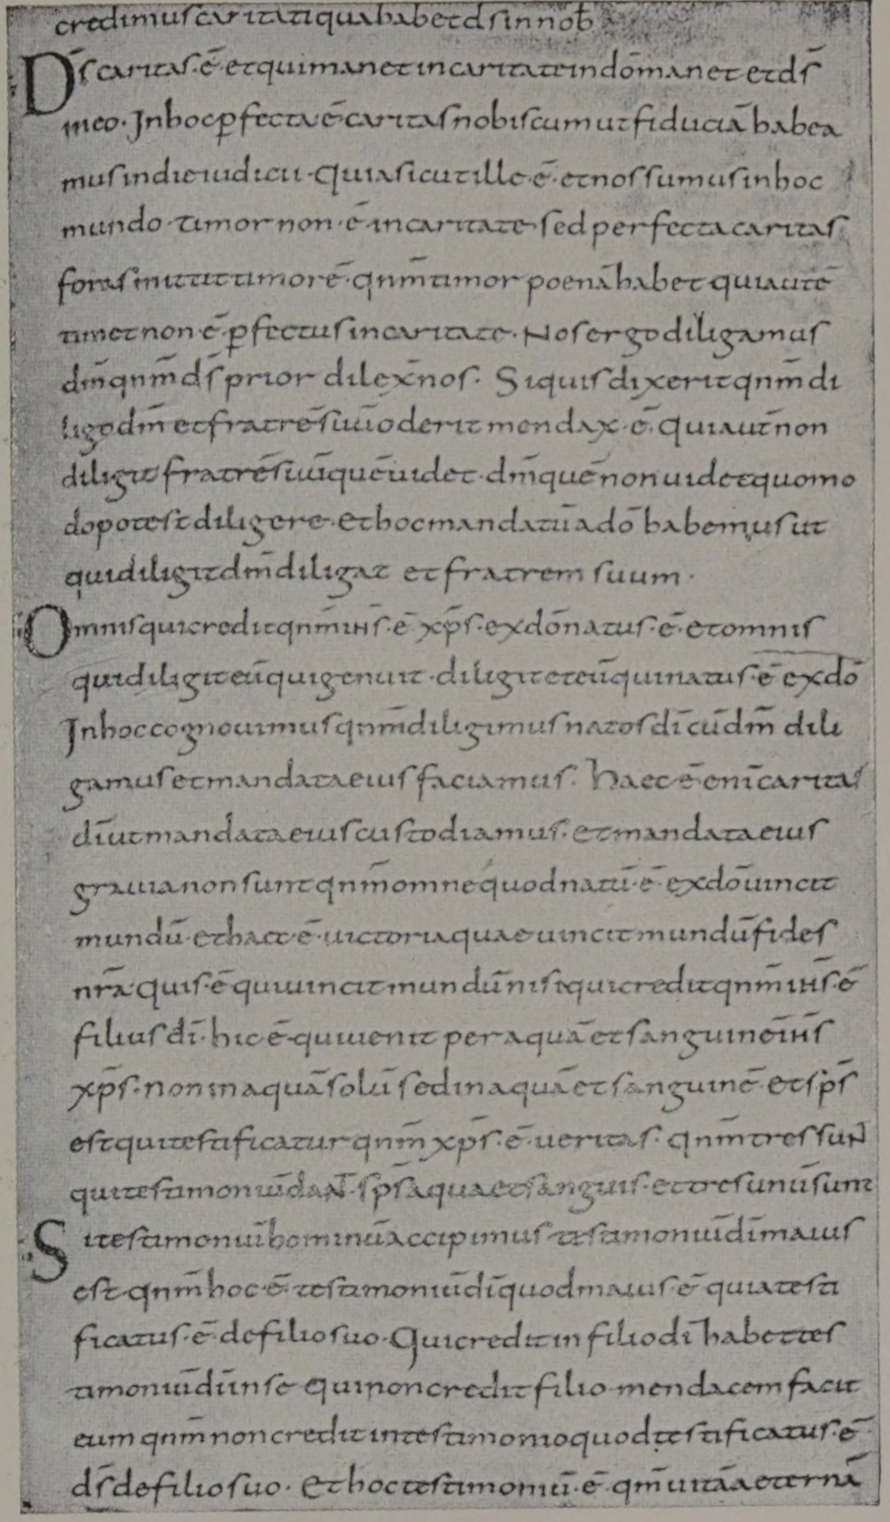 credimus caritati qua habet ds̄ in nob̄
Ds̄ caritas ·ē· et qui manet in caritate in dō manet et ds̄
in eo · In hoc ꝑfecta ē caritas nobiscum ut fiduciā habea
mus in die iudicii · Quia sicut ille ·ē· et nos sumus in hoc
mundo · timor non ·ē· in caritate · sed perfecta caritas
foras mittit timorē · qnm̄ timor poenā habet qui autē
timet non ·ē· ꝑfectus in caritate · Nos ergo diligamus
dm̄ qnm̄ ds̄ prior dilex̄ nos · Si quis dixerit qnm̄ di
ligo dm̄ et fratrē suū oderit mendax ·ē· Qui aut̄ non
diligit fratrē suū quē uidet · dm̄ quē non uidet quomo
do potest diligere · Et hoc mandatū a dō habemus ut
qui diligit dm̄ diligat et fratrem suum ·
Omnis qui credit qnm̄ ihs̄ ·ē· xp̄s · ex dō natus ·ē· et omnis
qui diligit eū qui genuit · diligit et eū qui natus ·ē· ex dō
In hoc cognouimus qnm̄ diligimus natos dī cū dm̄ dili
gamus et mandata eius faciamus · Haec ·ē· enī caritas
dī ut mandata eius custodiamus · et mandata eius
grauia non sunt qnm̄ omne quod natū ·ē· ex dō uincit
mundū · et haec ·ē· uictoria quae uincit mundū fides
nrā · quis ·ē· qui uincit mundū nisi qui credit qnm̄ ihs̄ ·ē·
filius dī · hic ·ē· qui uenit per aquā et sanguinē ihs̄
xp̄s · non in aquā solū sed in aquā et sanguinē · et sp̄s
est qui testificatur qnm̄ xp̄s ·ē· ueritas · qnm̄ tres suN
qui testimoniū daNT · sp̄s aqua et sanguis · et tres unū sunt
Si testimoniū hominū accipimus · testimoniū dī maius
est · qnm̄ hoc ·ē· testimoniū dī quod maius ·ē· quia testi
ficatus ·ē· de filio suo · Qui credit in filio dī habet tes
timoniū dī in se · Qui non credit filio · mendacem facit
eum qnm̄ non credit in testimonio quod testificatus ·ē·
ds̄ de filio suo · Et hoc testimoniū ·ē· qm̄ uitā aeternā